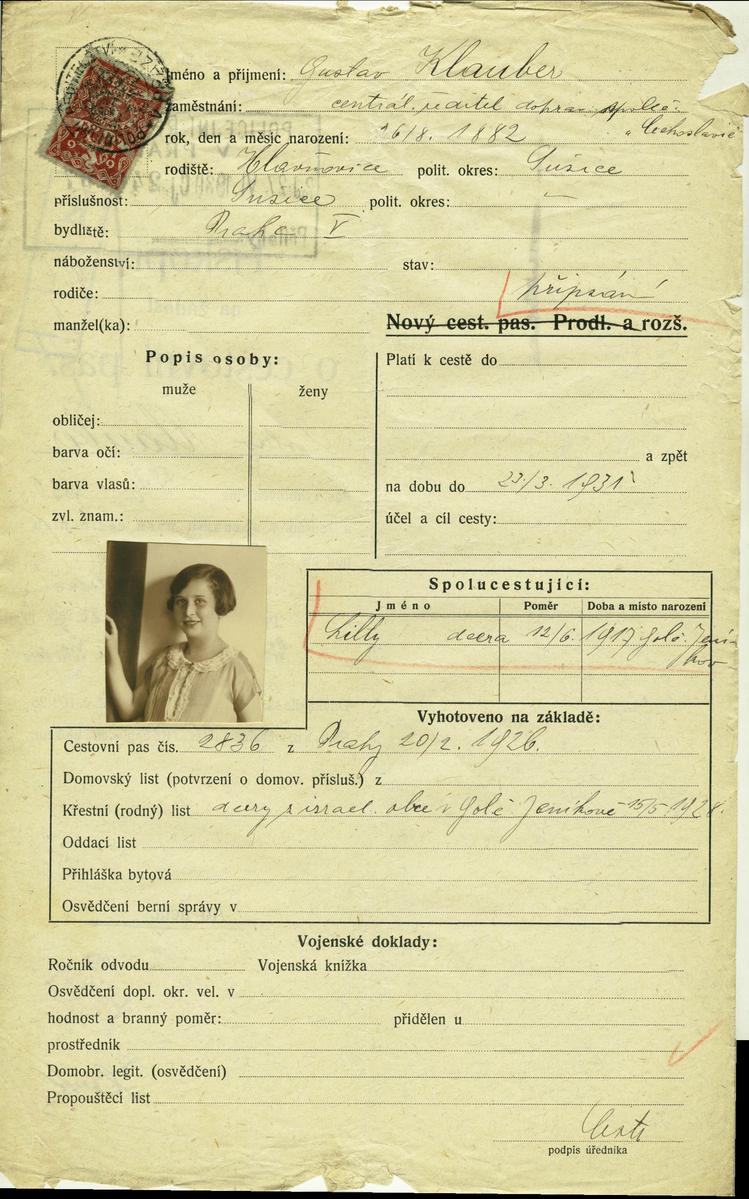 Jméno a příjmení: Gustav Klauber
zaměstnání: centrál. ředitel doprav. společ.
„Čechoslavie
rok, den a měsíc narození: 26/8. 1882
rodiště: Hlavňovice polit. okres: Sušice
příslušnost: Sušice polit. okres: –
bydliště: Praha V
náboženství: stav:
rodiče: připsání
manžel(ka): Nový cest. pas. Prodl. a rozš.
Popis osoby: Platí k cestě do
muže ženy
obličej:
barva očí: a zpět
barva vlasů: na dobu do 23/3. 1931
zvl. znam.: účel a cíl cesty:
Spolucestující:
Jméno Poměr Doba a místo narození
Lilly dcera 12/6. 1917 Golč. Jeníkov
Vyhotoveno na základě:
Cestovní pas čís. 2836 z Prahy 20/2. 1926.
Domovský list (potvrzení o domov. přísluš.) z
Křestní (rodný) list dcery z israel. obce v Golč Jeníkově 15/5 1928.
Oddací list
Přihláška bytová
Osvědčení berní správy v
Vojenské doklady:
Ročník odvodu Vojenská knížka
Osvědčení dopl. okr. vel. v
hodnost a branný poměr: přidělen u
prostředník
Domobr. legit. (osvědčení)
Propouštěcí list
podpis úředníka